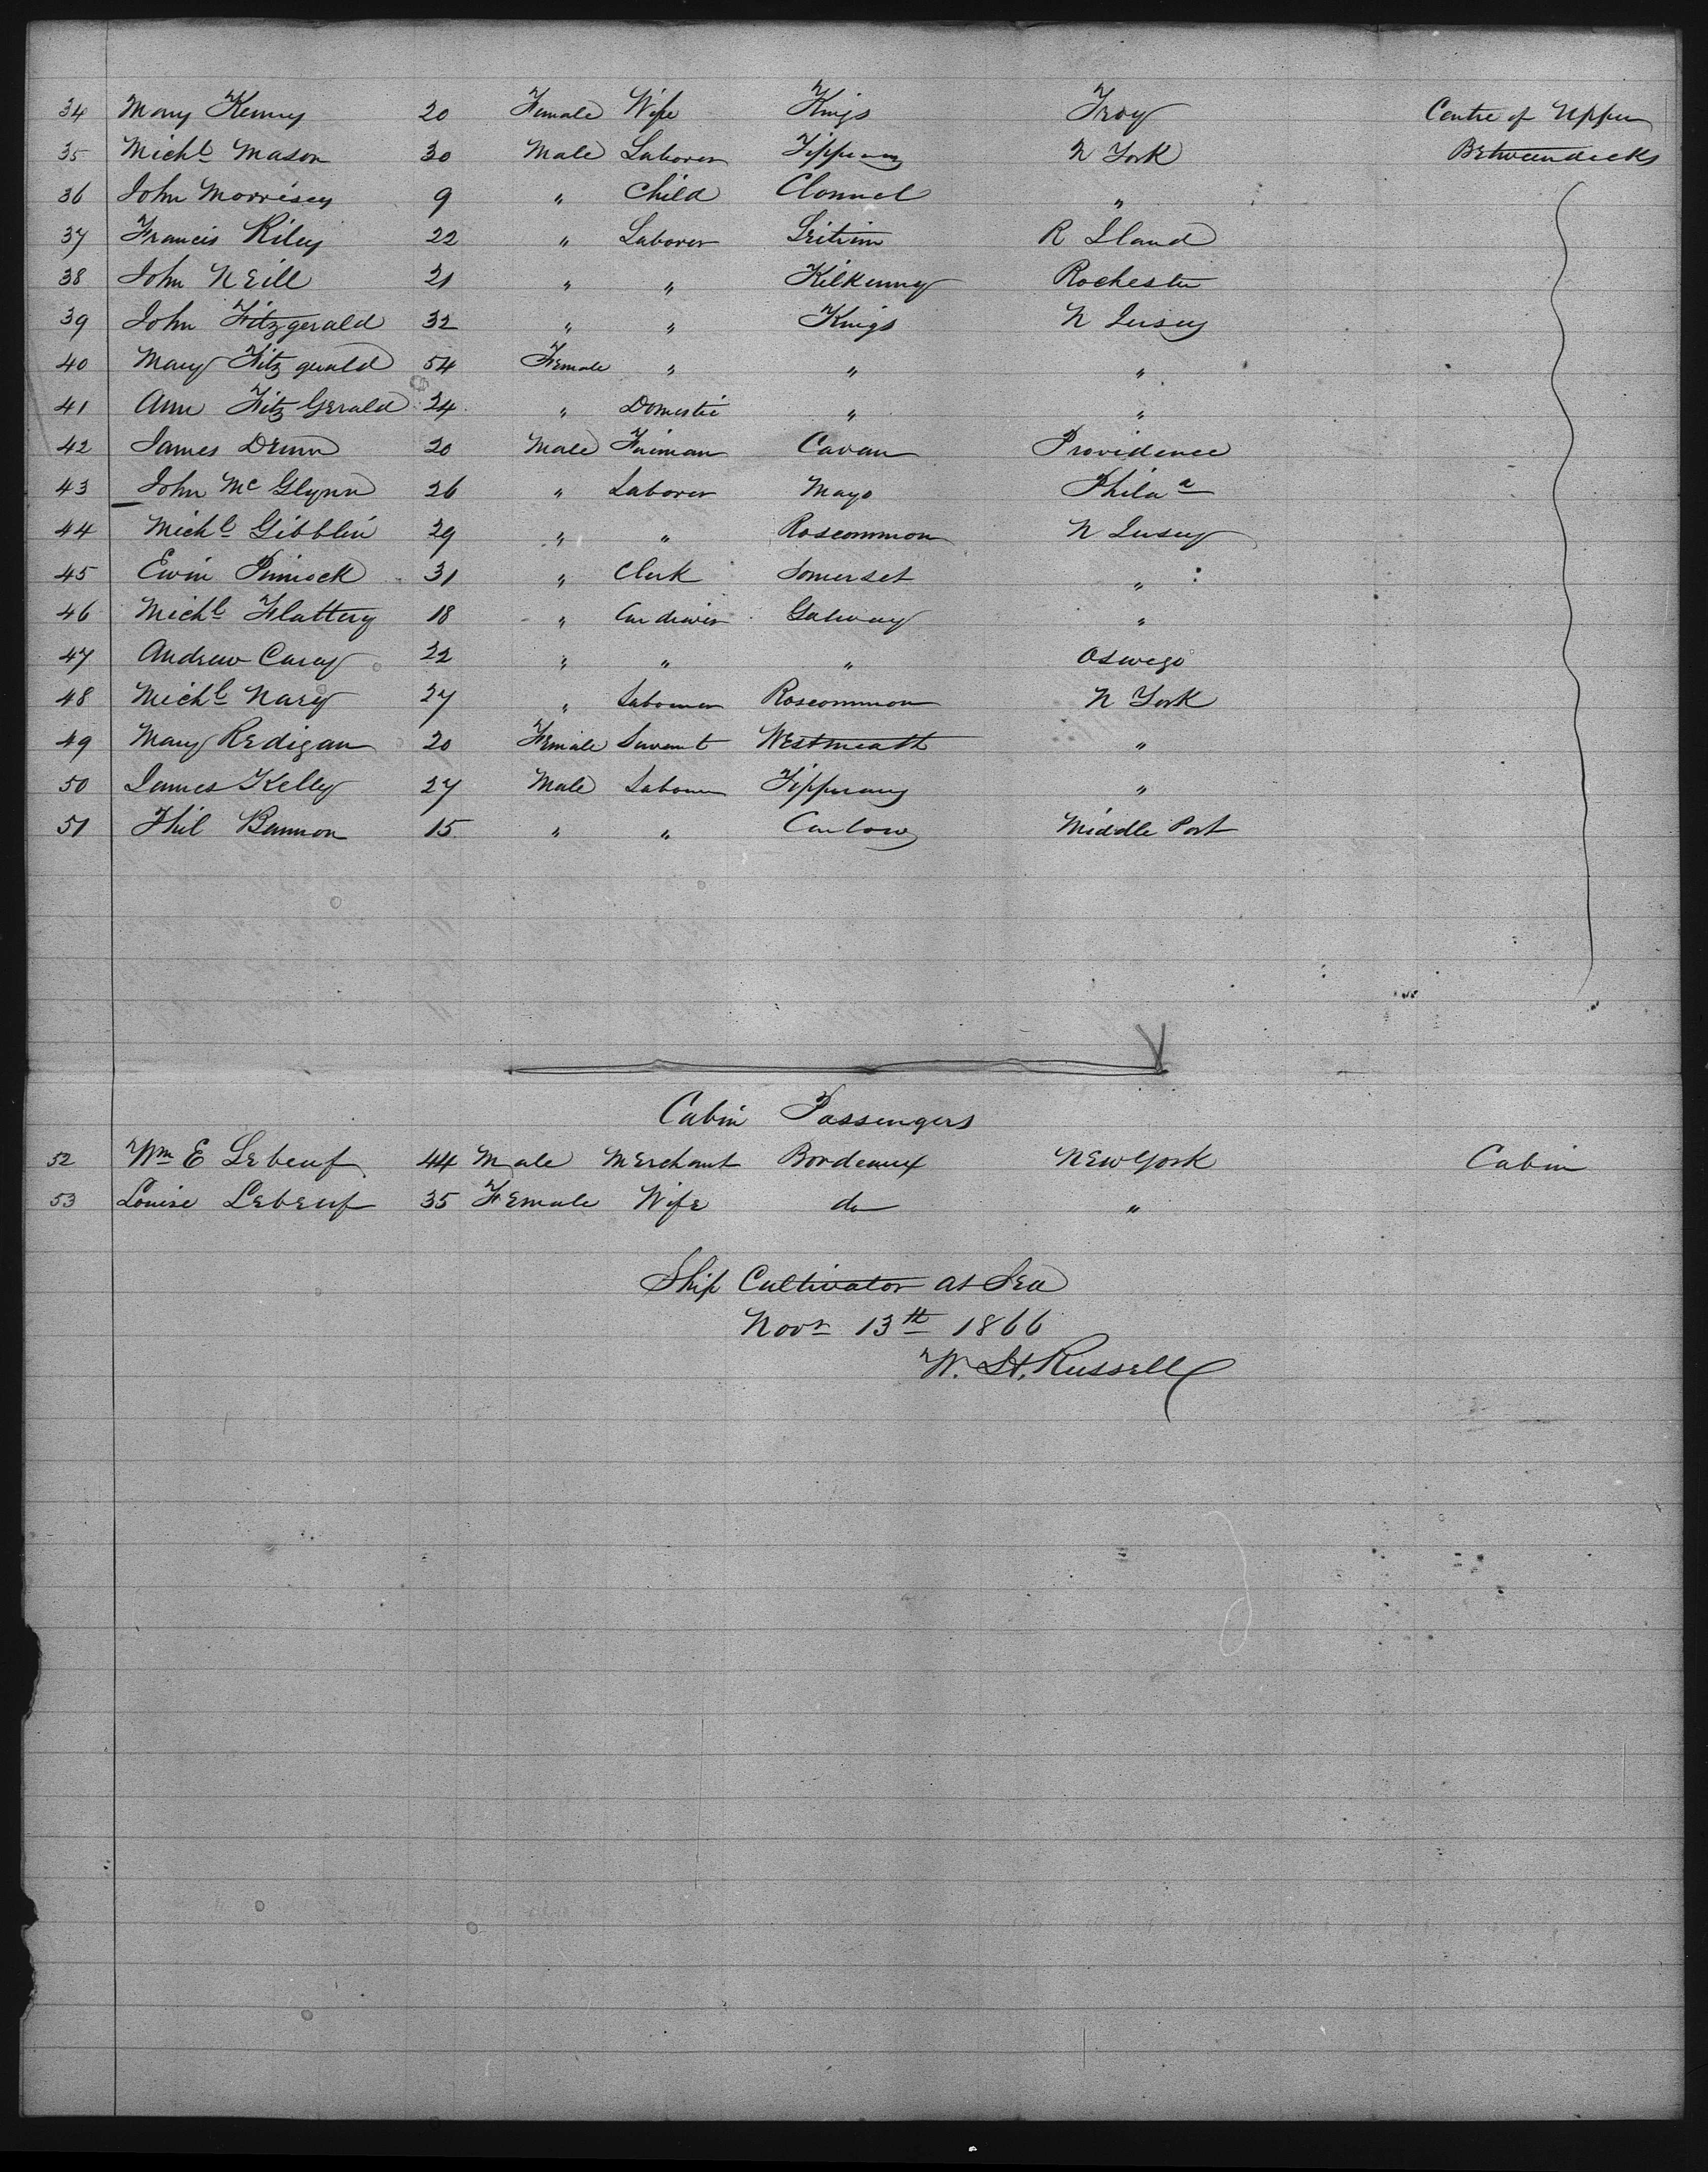 34 Mary Kenny 20 Female Wife Kings Troy Centre of Upper
35 Michl Mason 30 Male Laborer Tipperary N York Betweendecks
36 John Morrisey 9 " Child Clonmel "
37 Francis Riley 22 " Laborer Leitrim R Iland
38 John Neill 21 " " Kilkenny Rochester
39 John Fitzgerald 32 " " Kings N Jersey
40 Mary Fitz gerald 54 Female " " "
41 Ann Fitz Gerald 24 " Domestic " "
42 James Drum 20 Male Fireman Cavan Providence
43 John Mc Glynn 26 " Laborer Mayo Phila
44 Michl Gibblin 29 " " Roscommon N Jersey
45 Ewin Pinnock 31 " Clerk Somerset "
46 Michl Flattery 18 " Car driver Galway "
47 Andrew Carey 22 " " " Oswego
48 Michl Nary 27 " Labourer Roscommon N York
49 Mary Redigan 20 Female Servant Westmeath "
50 James Kelly 27 Male Labourer Tipperary "
51 Phil Bannon 15 " " Carlow Middle Port
Cabin Passengers
52 Wm E Lebeuf 44 Male Merchant Bordeaux New York Cabin
53 Louise Lebeuf 35 Female Wife do "
Ship Cultivator at Sea
Novr 13th 1866
W. H. Russell